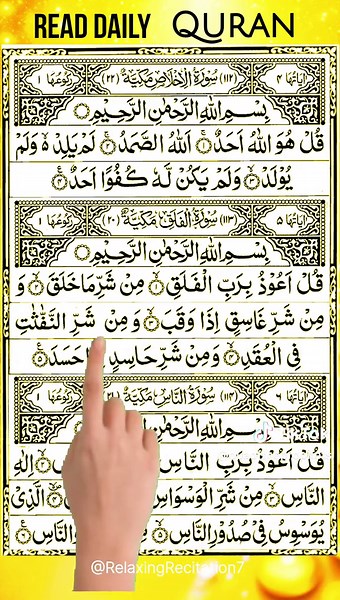 READ DAILY QURAN
اٰيَاتُهَا ٤ (١١٢) سُوْرَةُ الْاِخْلَاصِ مَكِّيَّةٌ (٢٢) رُكُوْعُهَا ١
بِسْمِ اللّٰهِ الرَّحْمٰنِ الرَّحِيْمِ
قُلْ هُوَ اللّٰهُ اَحَدٌ ۚ١ اَللّٰهُ الصَّمَدُ ۚ٢ لَمْ يَلِدْ ۙ وَلَمْ
يُوْلَدْ ۙ٣ وَلَمْ يَكُنْ لَّهٗ كُفُوًا اَحَدٌ ٤
اٰيَاتُهَا ٥ (١١٣) سُوْرَةُ الْفَلَقِ مَكِّيَّةٌ (٢٠) رُكُوْعُهَا ١
بِسْمِ اللّٰهِ الرَّحْمٰنِ الرَّحِيْمِ
قُلْ اَعُوْذُ بِرَبِّ الْفَلَقِ ۙ١ مِنْ شَرِّ مَا خَلَقَ ۙ٢ وَ
مِنْ شَرِّ غَاسِقٍ اِذَا وَقَبَ ۙ٣ وَمِنْ شَرِّ النَّفّٰثٰتِ
فِى الْعُقَدِ ۙ٤ وَمِنْ شَرِّ حَاسِدٍ حَسَدَ ٥
اٰيَاتُهَا ٦ (١١٤) سُوْرَةُ النَّاسِ مَكِّيَّةٌ رُكُوْعُهَا ١
بِسْمِ اللّٰهِ الرَّحْمٰنِ
قُلْ اَعُوْذُ بِرَبِّ النَّاسِ اِلٰهِ
النَّاسِ ۙ٣ مِنْ شَرِّ الْوَسْوَاسِ الَّذِىْ
يُوَسْوِسُ فِىْ صُدُوْرِ النَّاسِ ۙ٥ وَالنَّاسِ ٦
@RelaxingRecitation7